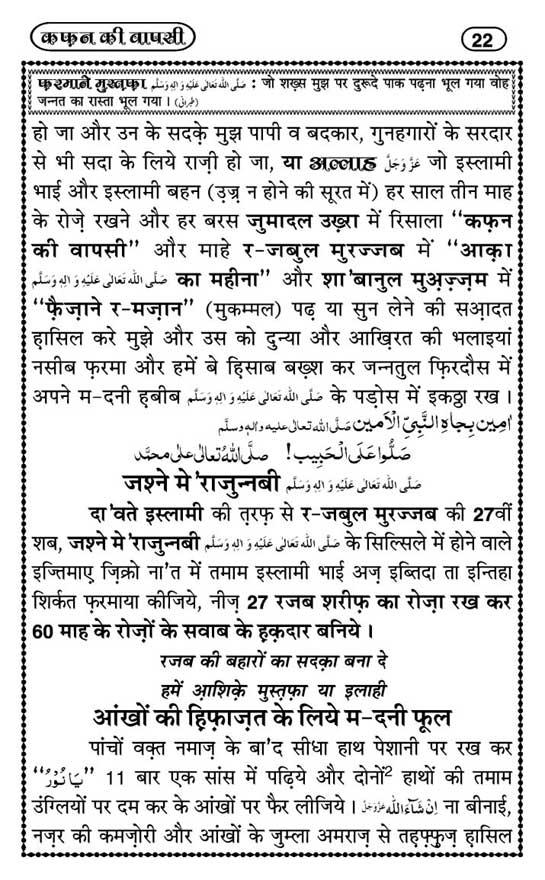 कफ़न की वापसी
22
फ़रमाने मुस्तफ़ा صَلَّی اللہُ تَعَالٰی عَلَیْہِ وَاٰلِہٖ وَسَلَّم : जो शख़्स मुझ पर दुरूदे पाक पढ़ना भूल गया वोह
जन्नत का रास्ता भूल गया । (طبرانی)
हो जा और उन के सदक़े मुझ पापी व बदकार, गुनहगारों के सरदार
से भी सदा के लिये राज़ी हो जा, या अल्लाह عَزَّوَجَلَّ जो इस्लामी
भाई और इस्लामी बहन (उज़्र न होने की सूरत में) हर साल तीन माह
के रोज़े रखने और हर बरस जुमादल उख़्रा में रिसाला ‘‘कफ़न
की वापसी’’ और माहे र-जबुल मुरज्जब में ‘‘आक़ा
صَلَّی اللہُ تَعَالٰی عَلَیْہِ وَاٰلِہٖ وَسَلَّم का महीना’’ और शा'बानुल मुअ़ज़्ज़म में
‘‘फ़ैज़ाने र-मज़ान’’ (मुकम्मल) पढ़ या सुन लेने की सआ़दत
ह़ासिल करे मुझे और उस को दुन्या और आख़िरत की भलाइयां
नसीब फ़रमा और हमें बे हिसाब बख़्श कर जन्नतुल फ़िरदौस में
अपने म-दनी ह़बीब صَلَّی اللہُ تَعَالٰی عَلَیْہِ وَاٰلِہٖ وَسَلَّم के पड़ोस में इकठ्ठा रख ।
اٰمِین بِجَاہِ النَّبِیِّ الْاَمین صَلَّی اللہ تعالٰی علیہ واٰلہٖ وسلَّم
صَلُّوْا عَلَی الْحَبِیْب! صلَّی اللہُ تعالٰی علٰی محمَّد
जश्ने मे'राजुन्नबी صَلَّی اللہُ تَعَالٰی عَلَیْہِ وَاٰلِہٖ وَسَلَّم
दा'वते इस्लामी की त़रफ़ से र-जबुल मुरज्जब की 27वीं
शब, जश्ने मे'राजुन्नबी صَلَّی اللہُ تَعَالٰی عَلَیْہِ وَاٰلِہٖ وَسَلَّم के सिल्सिले में होने वाले
इज्तिमाए़ ज़िक्रो ना'त में तमाम इस्लामी भाई अज़ इब्तिदा ता इन्तिहा
शिर्कत फ़रमाया कीजिये, नीज़ 27 रजब शरीफ़ का रोज़ा रख कर
60 माह के रोज़ों के सवाब के ह़क़दार बनिये ।
रजब की बहारों का सदक़ा बना दे
हमें आ़शिक़े मुस्त़फ़ा या इलाही
आंखों की ह़िफ़ाज़त के लिये म-दनी फूल
पांचों वक़्त नमाज़ के बा'द सीधा हाथ पेशानी पर रख कर
‘‘یَا نُوْرُ’’ 11 बार एक सांस में पढ़िये और दोनों² हाथों की तमाम
उंग्लियों पर दम कर के आंखों पर फैर लीजिये । اِنْ شَآءَاللہ عَزَّوَجَلَّ ना बीनाई,
नज़र की कमज़ोरी और आंखों के जुम्ला अमराज़ से तह़फ़्फ़ुज़ ह़ासिल